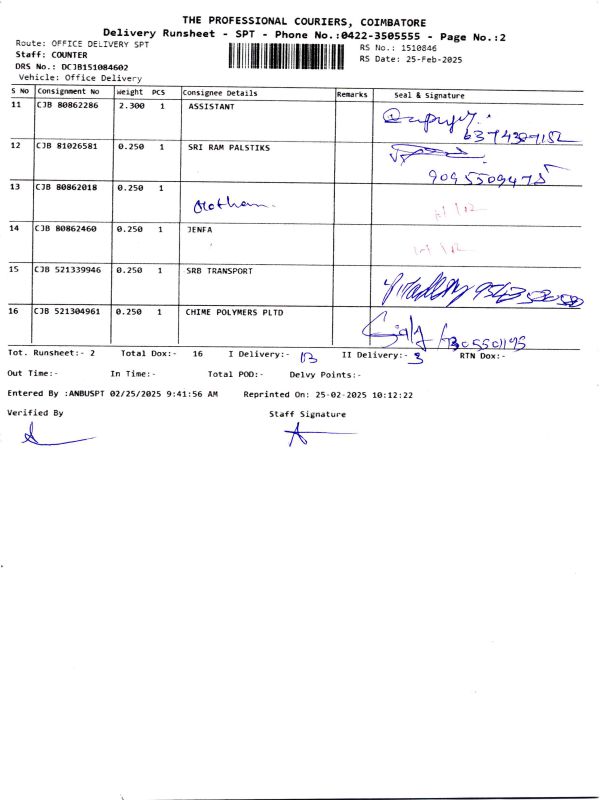 THE PROFESSIONAL COURIERS, COIMBATORE
Delivery Runsheet - SPT - Phone No.:0422-3505555 - Page No.:2
Route: OFFICE DELIVERY SPT
RS No.: 1510846
Staff: COUNTER
RS Date: 25-Feb-2025
DRS No.: DCJB151084602
Vehicle: Office Delivery
S No Consignment No Weight PCS Consignee Details Remarks Seal & Signature
11 CJB 80862286 2.300 1 ASSISTANT
12 CJB 81026581 0.250 1 SRI RAM PALSTIKS
9095509475
13 CJB 80862018 0.250 1
14 CJB 80862460 0.250 1 JENFA
15 CJB 521339946 0.250 1 SRB TRANSPORT
16 CJB 521304961 0.250 1 CHIME POLYMERS PLTD
Tot. Runsheet:- 2 Total Dox:- 16 I Delivery:- 13 II Delivery:- 3 RTN Dox:-
Out Time:- In Time:- Total POD:- Delvy Points:-
Entered By :ANBUSPT 02/25/2025 9:41:56 AM Reprinted On: 25-02-2025 10:12:22
Verified By Staff Signature